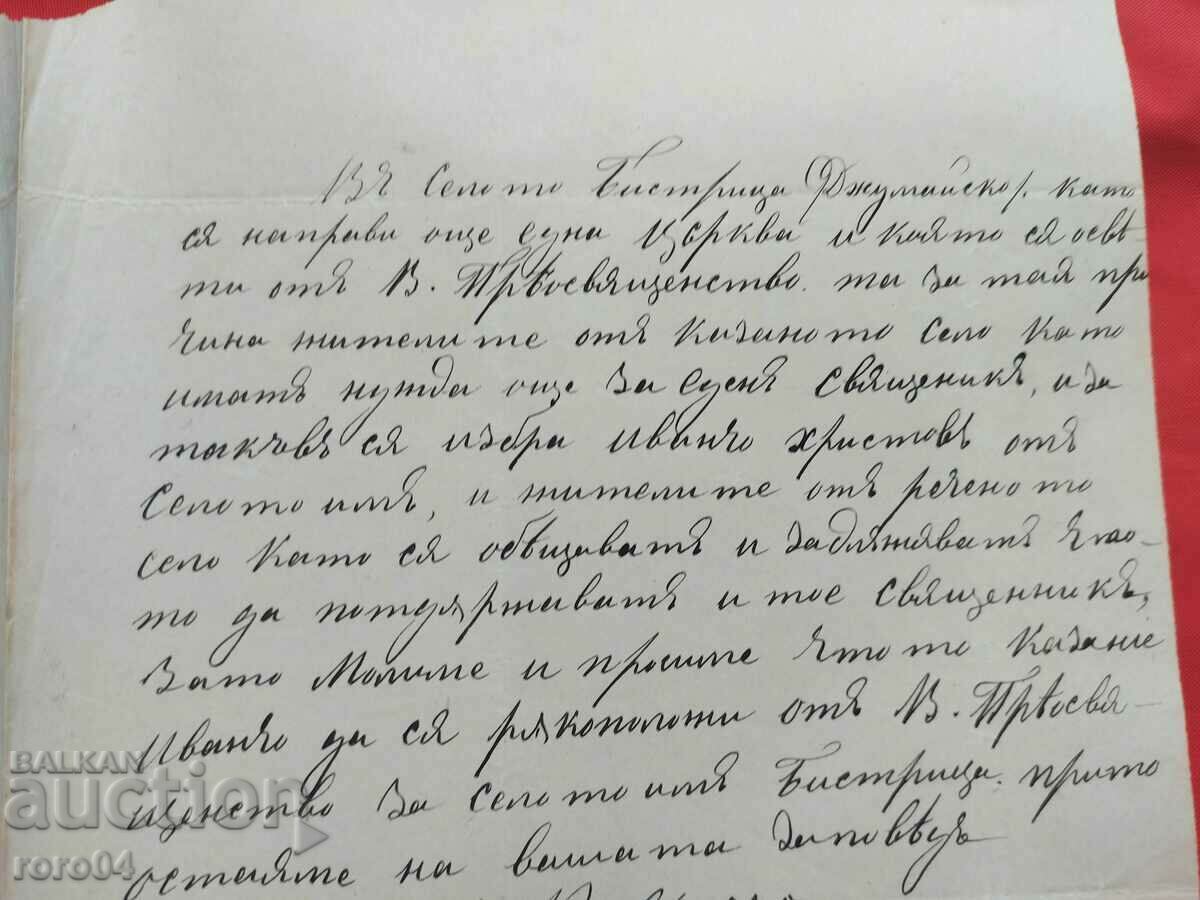 Въ Селото Бистрица (Джумайско). като
ся направи още една Църква и която ся освѣ-
ти отъ В. Прѣосвященство. та за тая при
чина жителите отъ казаното село като
иматъ нужда още за Еденъ священикъ, и за
такъвъ ся избра иванчо христовъ отъ
Селото имъ, и жителите отъ реченото
село като ся обѣщаватъ и задляжняватъ що-
то да потдяржаватъ и тое священникъ,
Зато Молиме и просиме щото казаніе
Иванчо да ся рякоположи отъ В. Прѣосвя-
щенство за селото имъ Бистрица. прито
остаяме на вашата Заповѣдь
BALKAN
auction
roro04